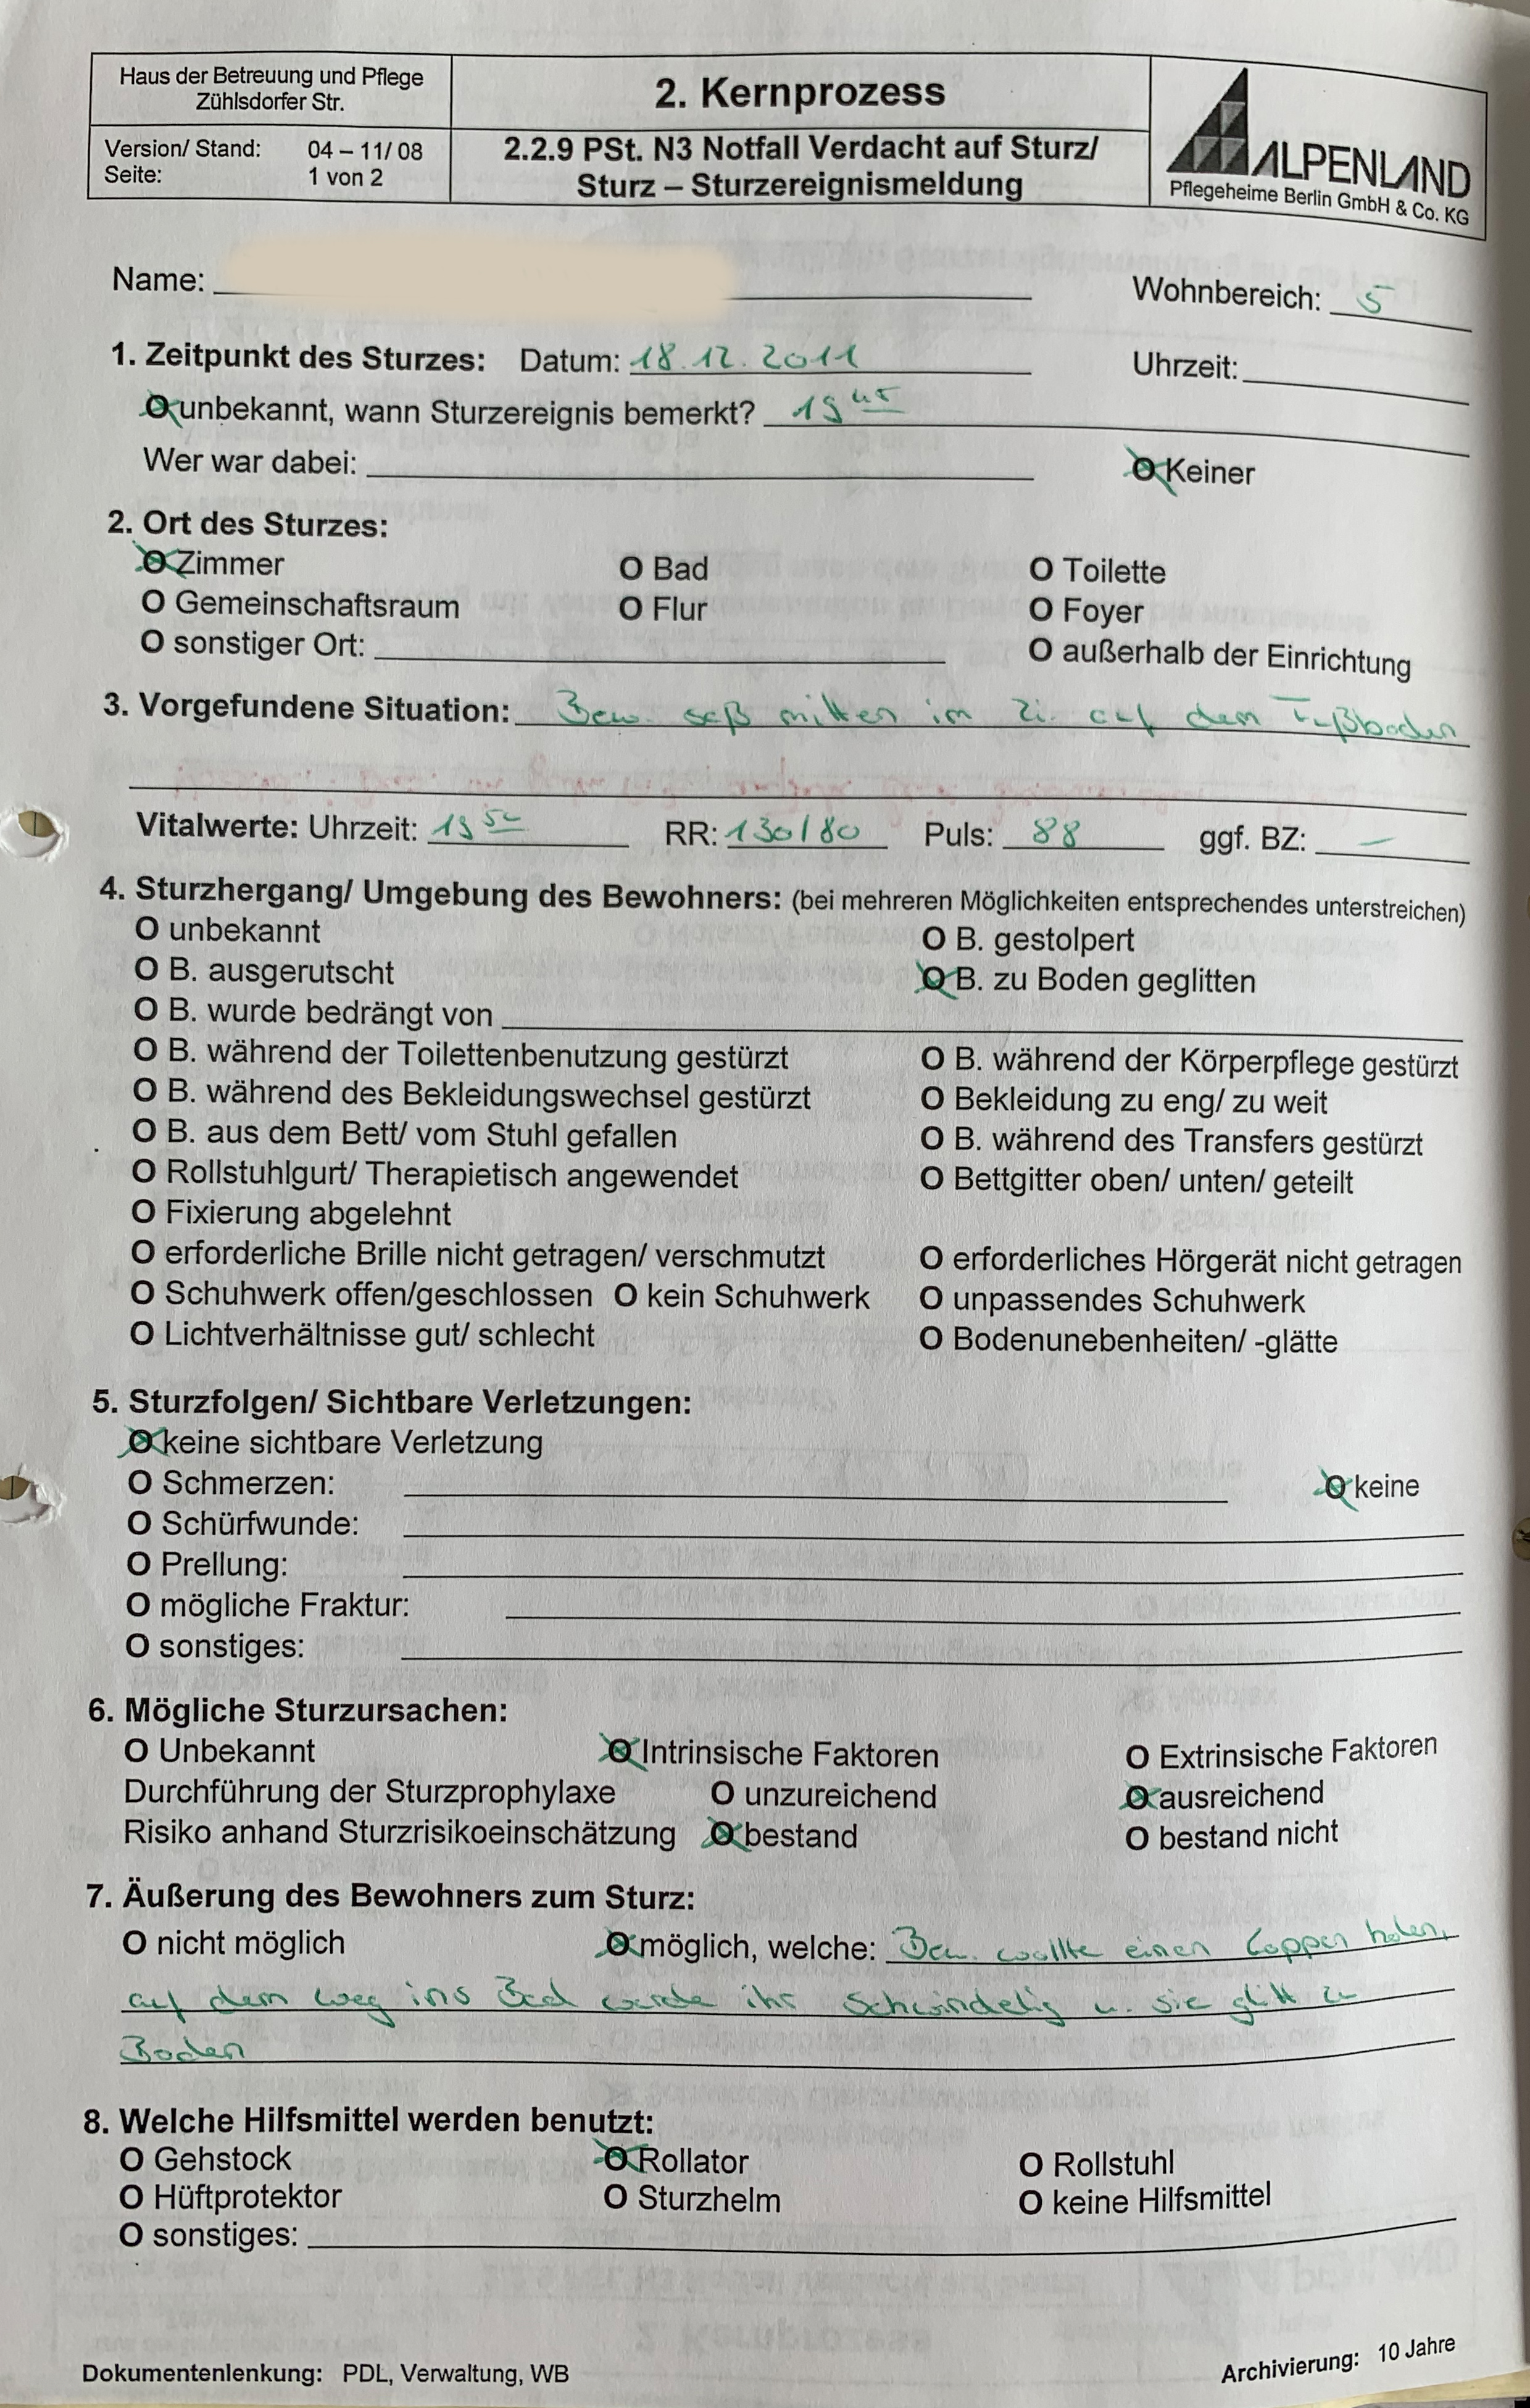 Haus der Betreuung und Pflege
Zühlsdorfer Str.
2. Kernprozess
Version/ Stand: 04 – 11/ 08
Seite: 1 von 2
2.2.9 PSt. N3 Notfall Verdacht auf Sturz/
Sturz – Sturzereignismeldung
ALPENLAND
Pflegeheime Berlin GmbH & Co. KG
Name: Wohnbereich: 5
1. Zeitpunkt des Sturzes: Datum: 18.12.2011 Uhrzeit:
O unbekannt, wann Sturzereignis bemerkt? 19 45
Wer war dabei: O Keiner
2. Ort des Sturzes:
O Zimmer O Bad O Toilette
O Gemeinschaftsraum O Flur O Foyer
O sonstiger Ort: O außerhalb der Einrichtung
3. Vorgefundene Situation: Bew. saß mitten im Zi. auf dem Fußboden
Vitalwerte: Uhrzeit: 19 50 RR: 130/80 Puls: 88 ggf. BZ: –
4. Sturzhergang/ Umgebung des Bewohners: (bei mehreren Möglichkeiten entsprechendes unterstreichen)
O unbekannt O B. gestolpert
O B. ausgerutscht O B. zu Boden geglitten
O B. wurde bedrängt von
O B. während der Toilettenbenutzung gestürzt O B. während der Körperpflege gestürzt
O B. während des Bekleidungswechsel gestürzt O Bekleidung zu eng/ zu weit
O B. aus dem Bett/ vom Stuhl gefallen O B. während des Transfers gestürzt
O Rollstuhlgurt/ Therapietisch angewendet O Bettgitter oben/ unten/ geteilt
O Fixierung abgelehnt
O erforderliche Brille nicht getragen/ verschmutzt O erforderliches Hörgerät nicht getragen
O Schuhwerk offen/geschlossen O kein Schuhwerk O unpassendes Schuhwerk
O Lichtverhältnisse gut/ schlecht O Bodenunebenheiten/ -glätte
5. Sturzfolgen/ Sichtbare Verletzungen:
O keine sichtbare Verletzung
O Schmerzen: O keine
O Schürfwunde:
O Prellung:
O mögliche Fraktur:
O sonstiges:
6. Mögliche Sturzursachen:
O Unbekannt O Intrinsische Faktoren O Extrinsische Faktoren
Durchführung der Sturzprophylaxe O unzureichend O ausreichend
Risiko anhand Sturzrisikoeinschätzung O bestand O bestand nicht
7. Äußerung des Bewohners zum Sturz:
O nicht möglich O möglich, welche: Bew. wollte einen Lappen holen,
auf dem Weg ins Bad wurde ihr schwindelig u. sie glitt zu
Boden
8. Welche Hilfsmittel werden benutzt:
O Gehstock O Rollator O Rollstuhl
O Hüftprotektor O Sturzhelm O keine Hilfsmittel
O sonstiges:
Dokumentenlenkung: PDL, Verwaltung, WB Archivierung: 10 Jahre